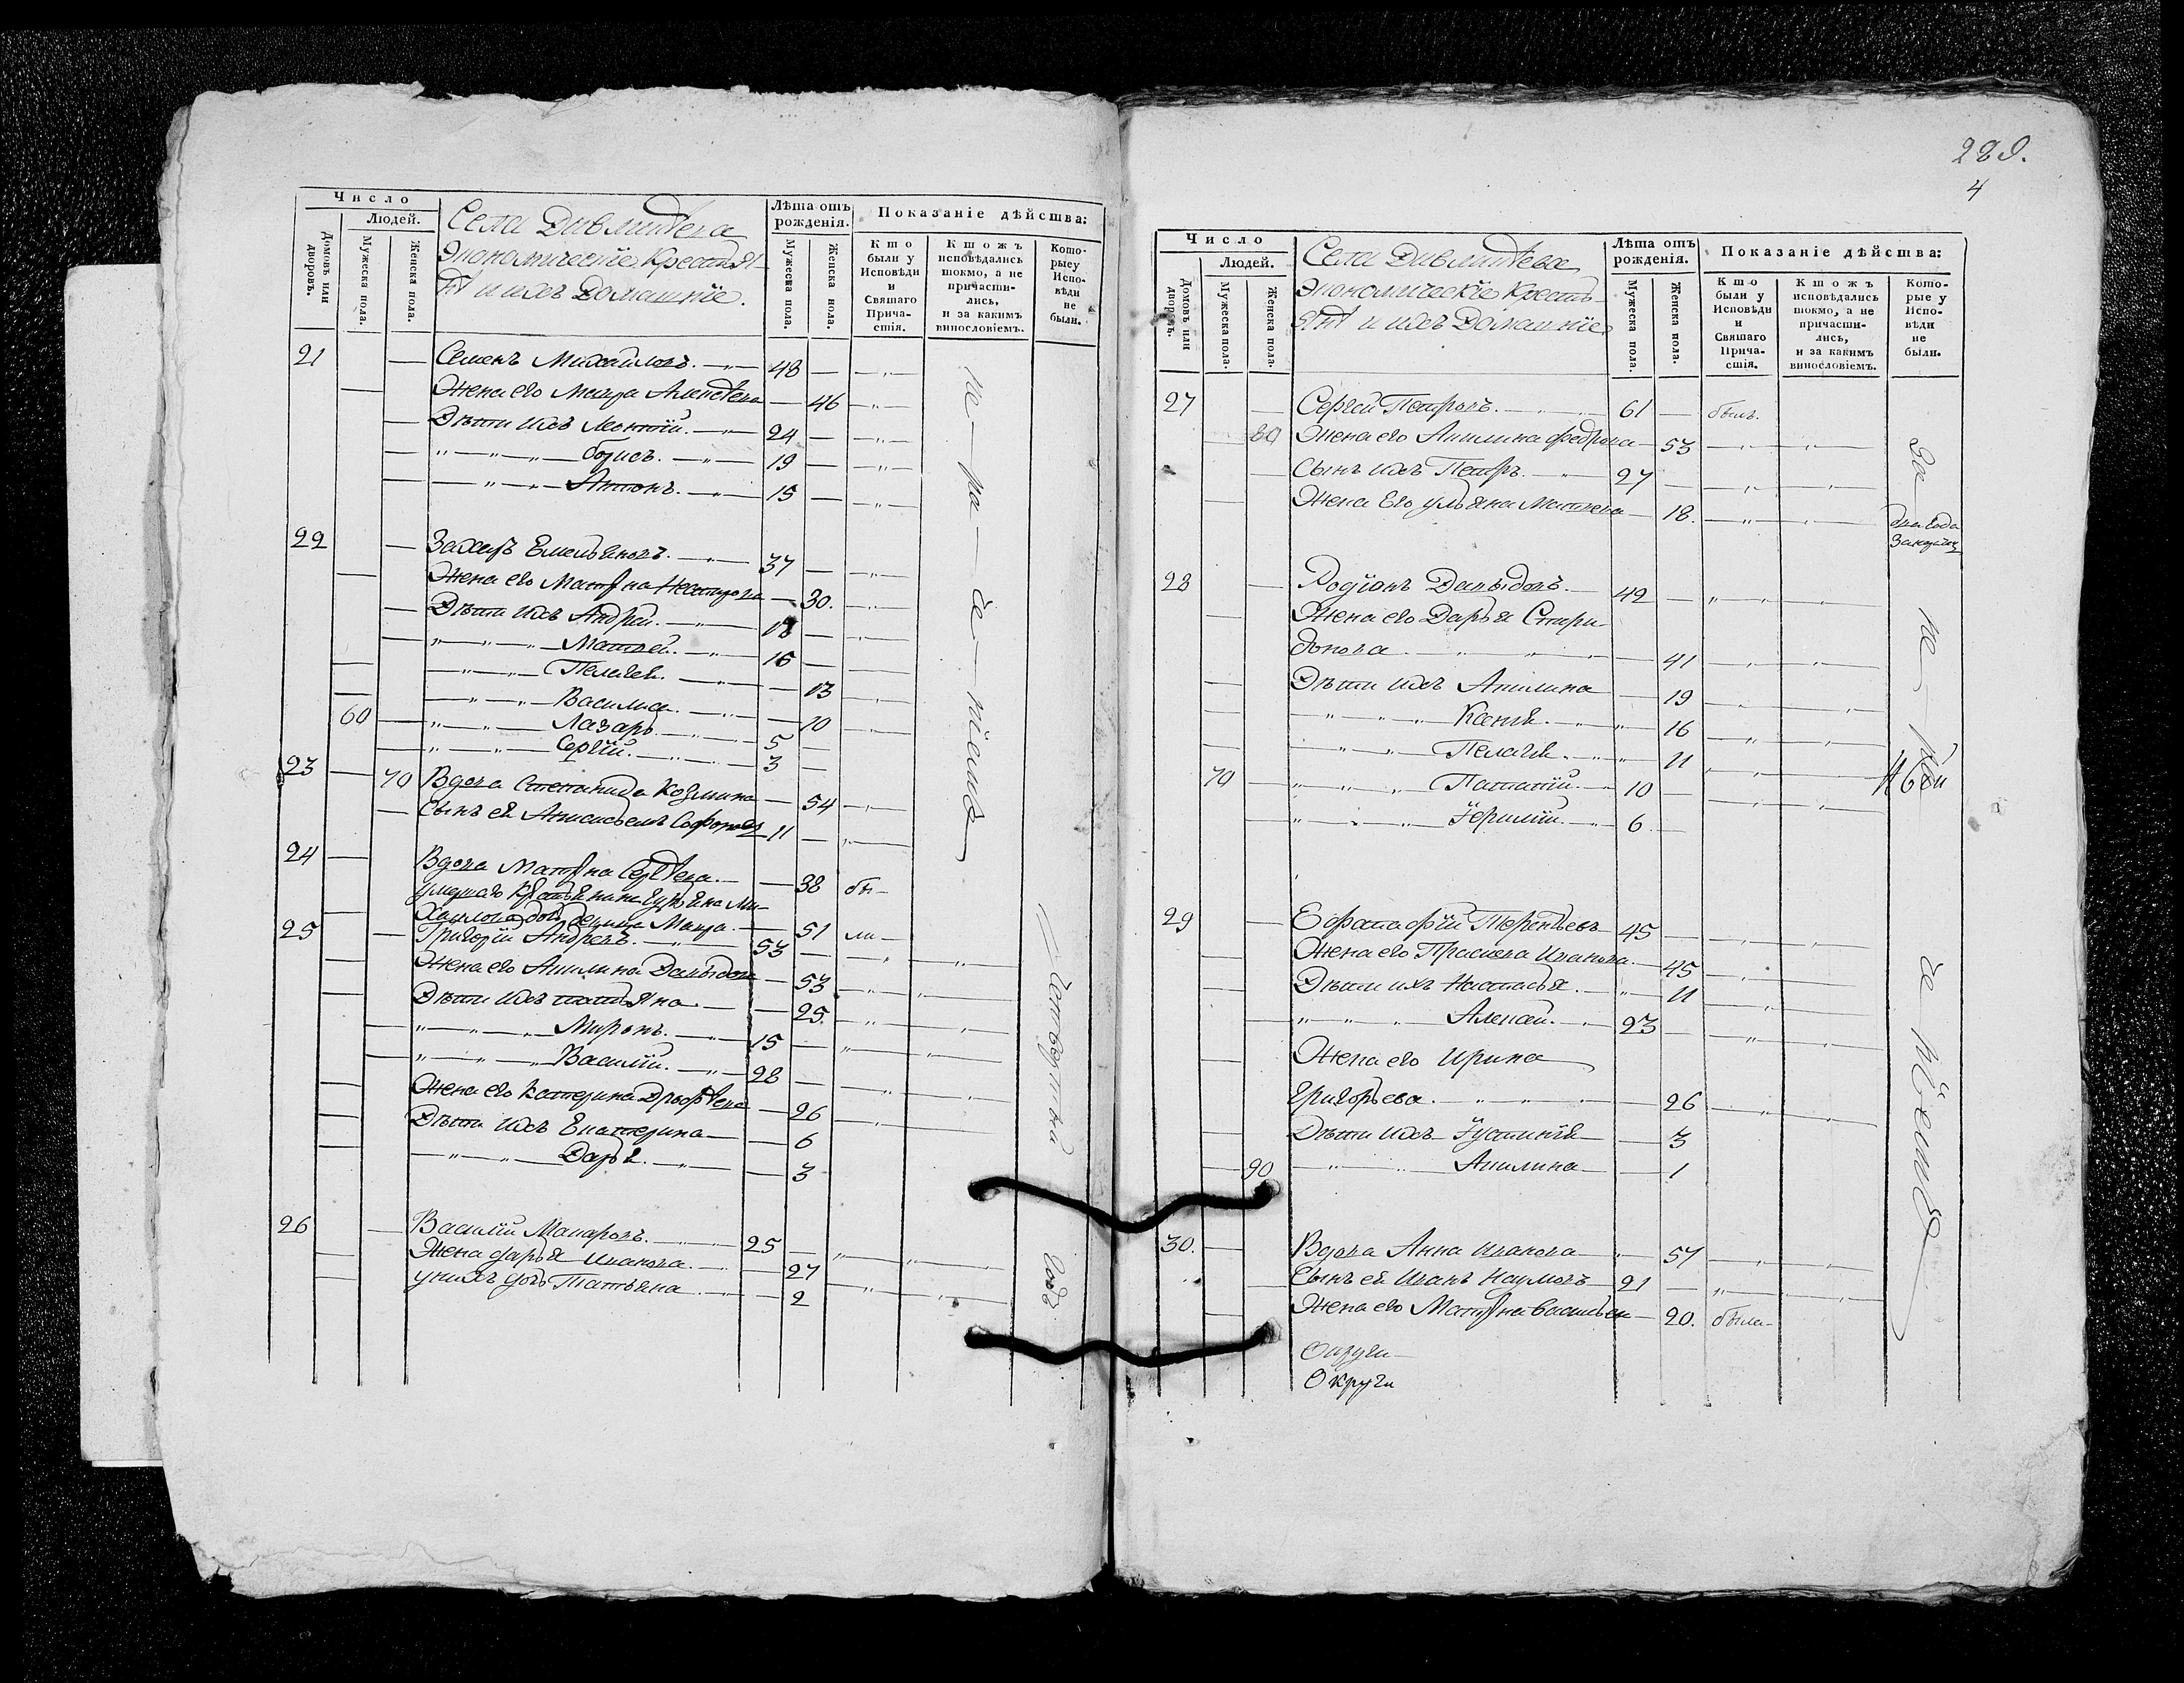 Число
Людей.
Домовъ или дворовъ.
Мужеска пола.
Женска пола.
Села
Экономическіе Крестья-
не и ихъ Домашніе.
Лѣта отъ рожденія.
Мужеска пола.
Женска пола.
Показаніе дѣйства:
Кто были у Исповѣди и Святаго Причастія.
Ктожъ исповѣдались токмо, а не причастились, и за какимъ винословіемъ.
Которые у Исповѣди не были.
21 Семенъ Михайловъ. 48
Жена его Мавра Алексѣева 46
Дѣти ихъ 24
Борисъ. 19
Антонъ. 15
22 Захаръ Емельяновъ. 37
Жена его Матрна Нестерова 30.
Дѣти ихъ Андрей. 18
Матвей. 16
Пелагея. 13
Василиса 10
60 Лазарь 5
Сергій. 3
23 70 Вдова Степанида Козмина 54
Сынъ ея 11
24 Вдова Матрна Сергѣева. 38 бы-
Михайлова дочь девица Мавра. 51 ли-
25 Григорій Андреевъ. 53
Жена его Акилина Давыдова 53
Дѣти ихъ татьяна 25.
Миронъ. 15
Василій. 28
Жена его Катерина 26
Дѣти ихъ Екатерина 6
Дарья. 3
26 Василій Макаровъ. 25
Жена дарья Иванова. 27
у нихъ дочь Татьяна 2
не ра де ніемъ
годъ
289.
4
Число
Людей.
Домовъ или дворовъ.
Мужеска пола.
Женска пола.
Села
Экономическіе Кресть-
яне и ихъ Домашніе
Лѣта отъ рожденія.
Мужеска пола.
Женска пола.
Показаніе дѣйства:
Кто были у Исповѣди и Святаго Причастія.
Ктожъ исповѣдались токмо, а не причастились, и за какимъ винословіемъ.
Которые у Исповѣди не были.
27 Сергій Петровъ. 61 былъ
80 Жена его Акилина Федрова 53
Сынъ ихъ Петръ. 27
Жена Его ульяна Матвева 18.
два года
28 Родіонъ Давыдовъ. 42
Жена его Дарья Спири-
донова 41
Дѣти ихъ Акилина 19
Ксенія. 16
Пелагея. 11
70 Патапій. 10
6
29 Терентьевъ 45
Жена его Прасковя Иванова. 45
Дѣти ихъ Настасья. 11
Алексей. 23
Жена его Ирина
Григорьева. 26
Дѣти ихъ Іустинія 3
90 Акилина 1
30. Вдова Анна Иванова 57
Сынъ ея Иванъ Наумовъ 21
Жена его Матрна Васильева 20. была-
Округи
Округи
не ра де ніемъ